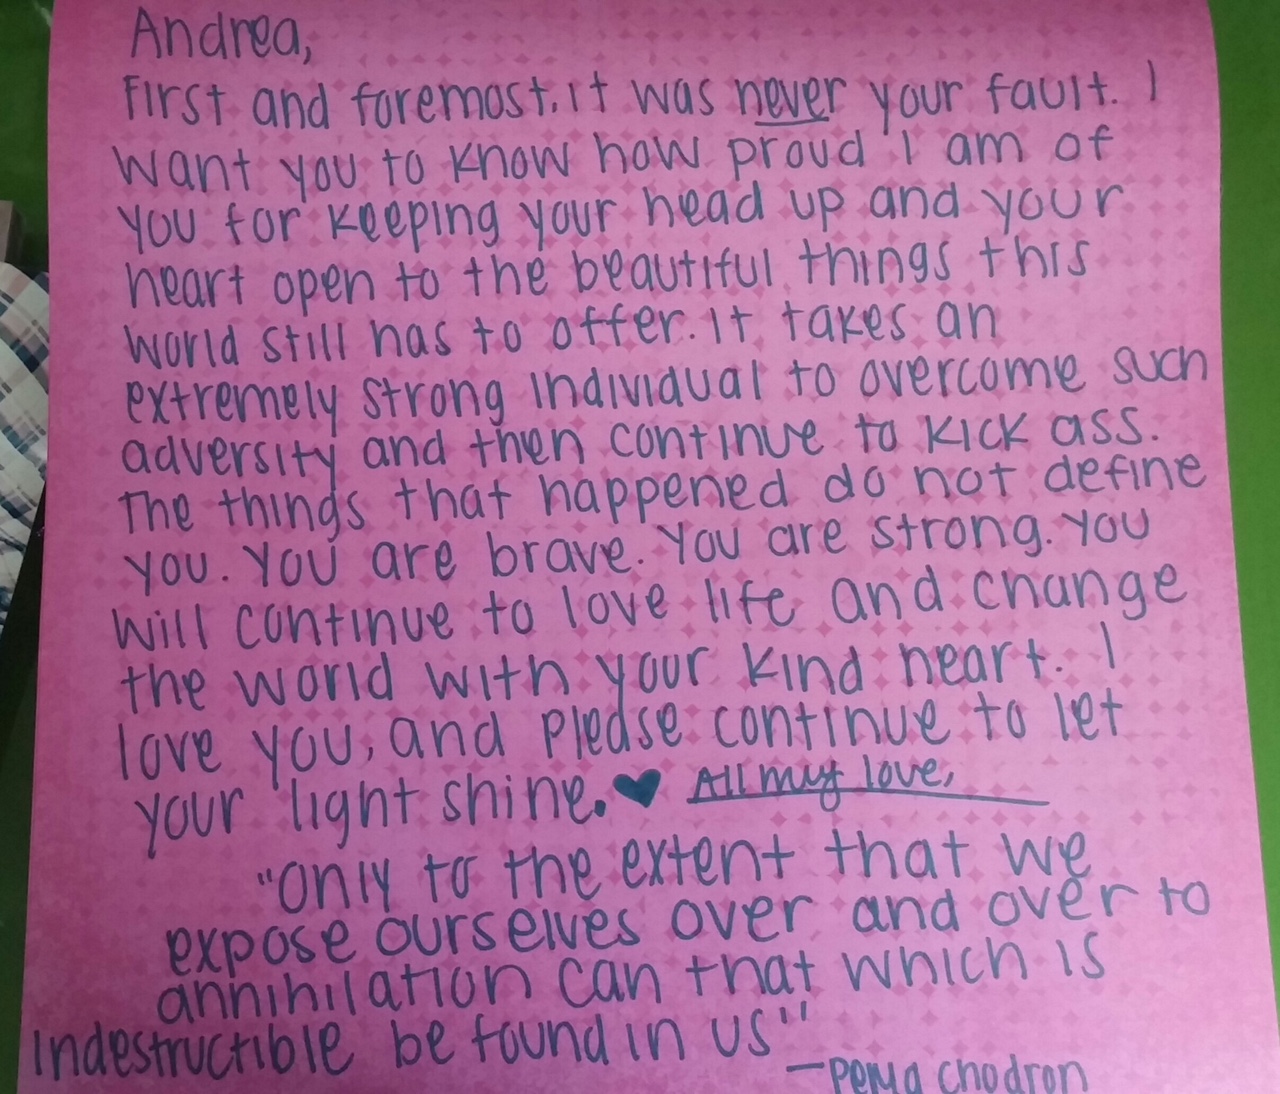 Andrea,
First and foremost, it was never your fault. I
want you to know how proud I am of
you for keeping your head up and your
heart open to the beautiful things this
world still has to offer. It takes an
extremely strong individual to overcome such
adversity and then continue to kick ass.
The things that happened do not define
you. You are brave. You are strong. You
will continue to love life and change
the world with your kind heart. I
love you, and please continue to let
your light shine. ♥ All my love,
"Only to the extent that we
expose ourselves over and over to
annihilation can that which is
indestructible be found in us"
—Pema Chodron